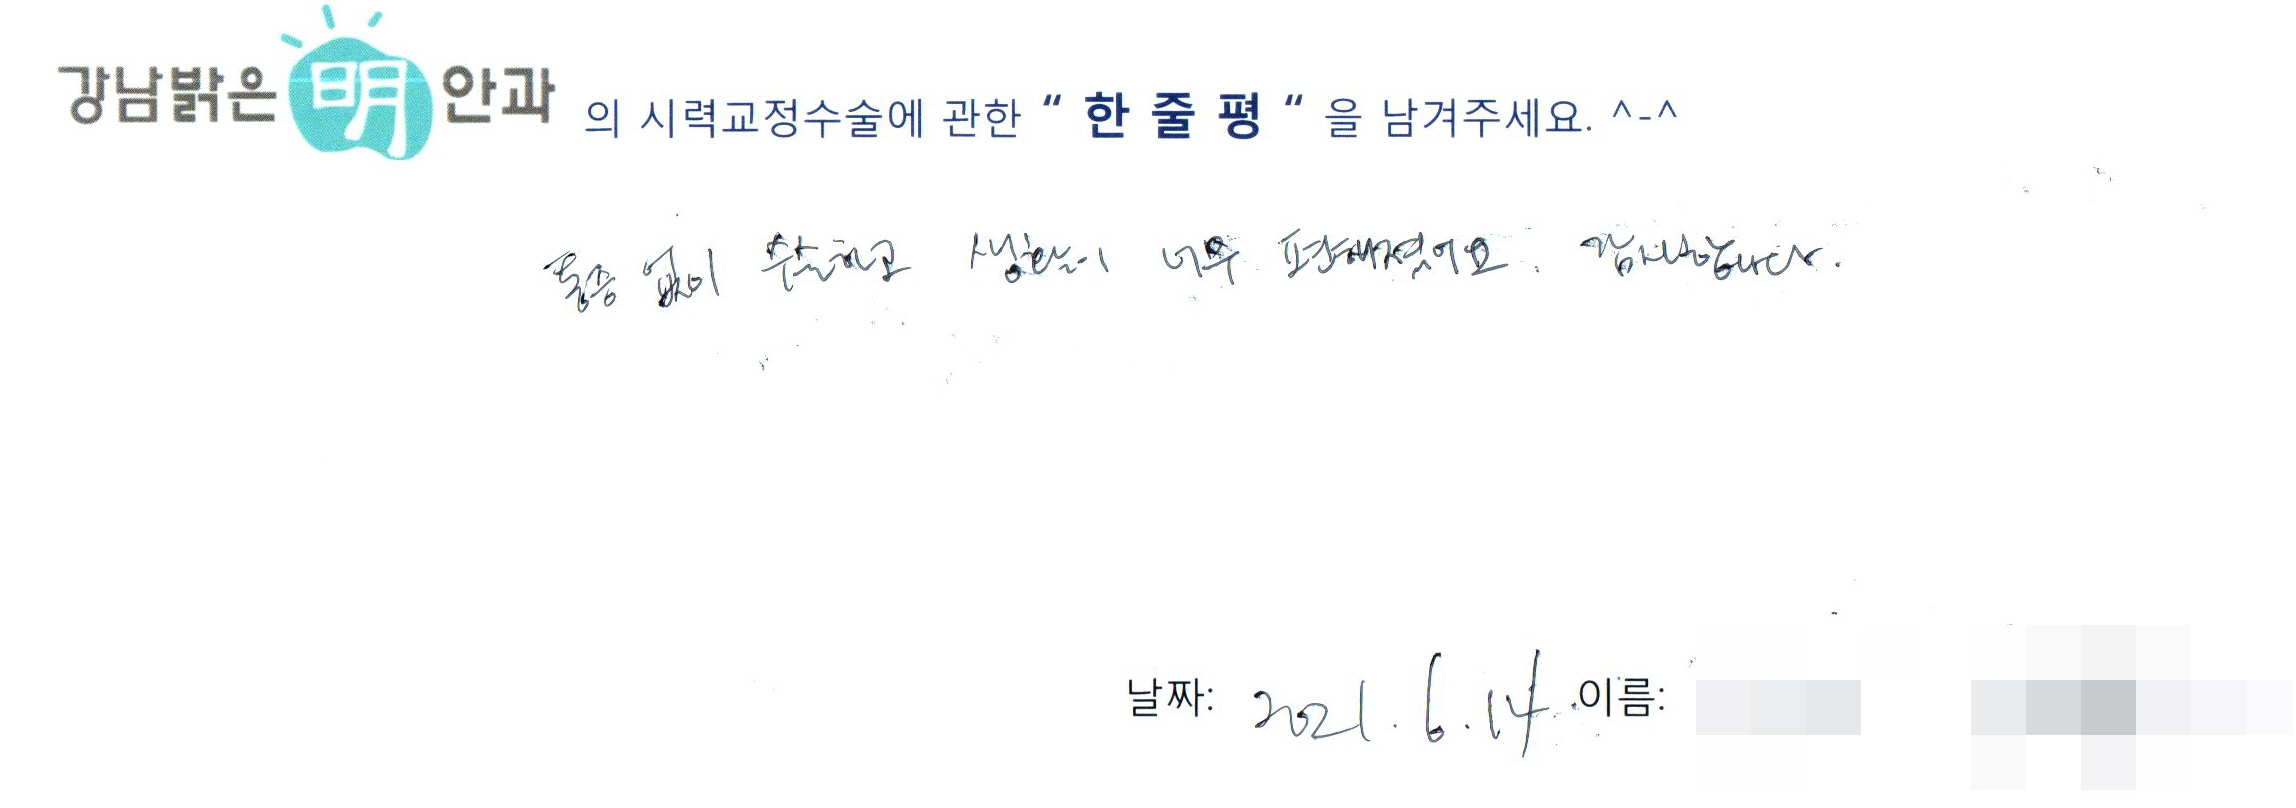 강남밝은明안과 의 시력교정수술에 관한 “ 한 줄 평 “ 을 남겨주세요. ^-^
통증 없이 수술하고 생활이 너무 편해졌어요. 감사합니다.
날짜: 2021. 6. 14 이름: